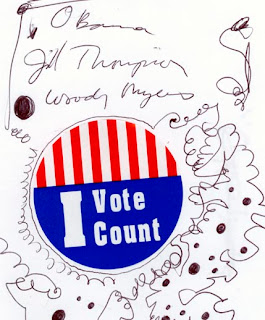 Obama
Jill Thompson
Woody Myers
I Vote
Count